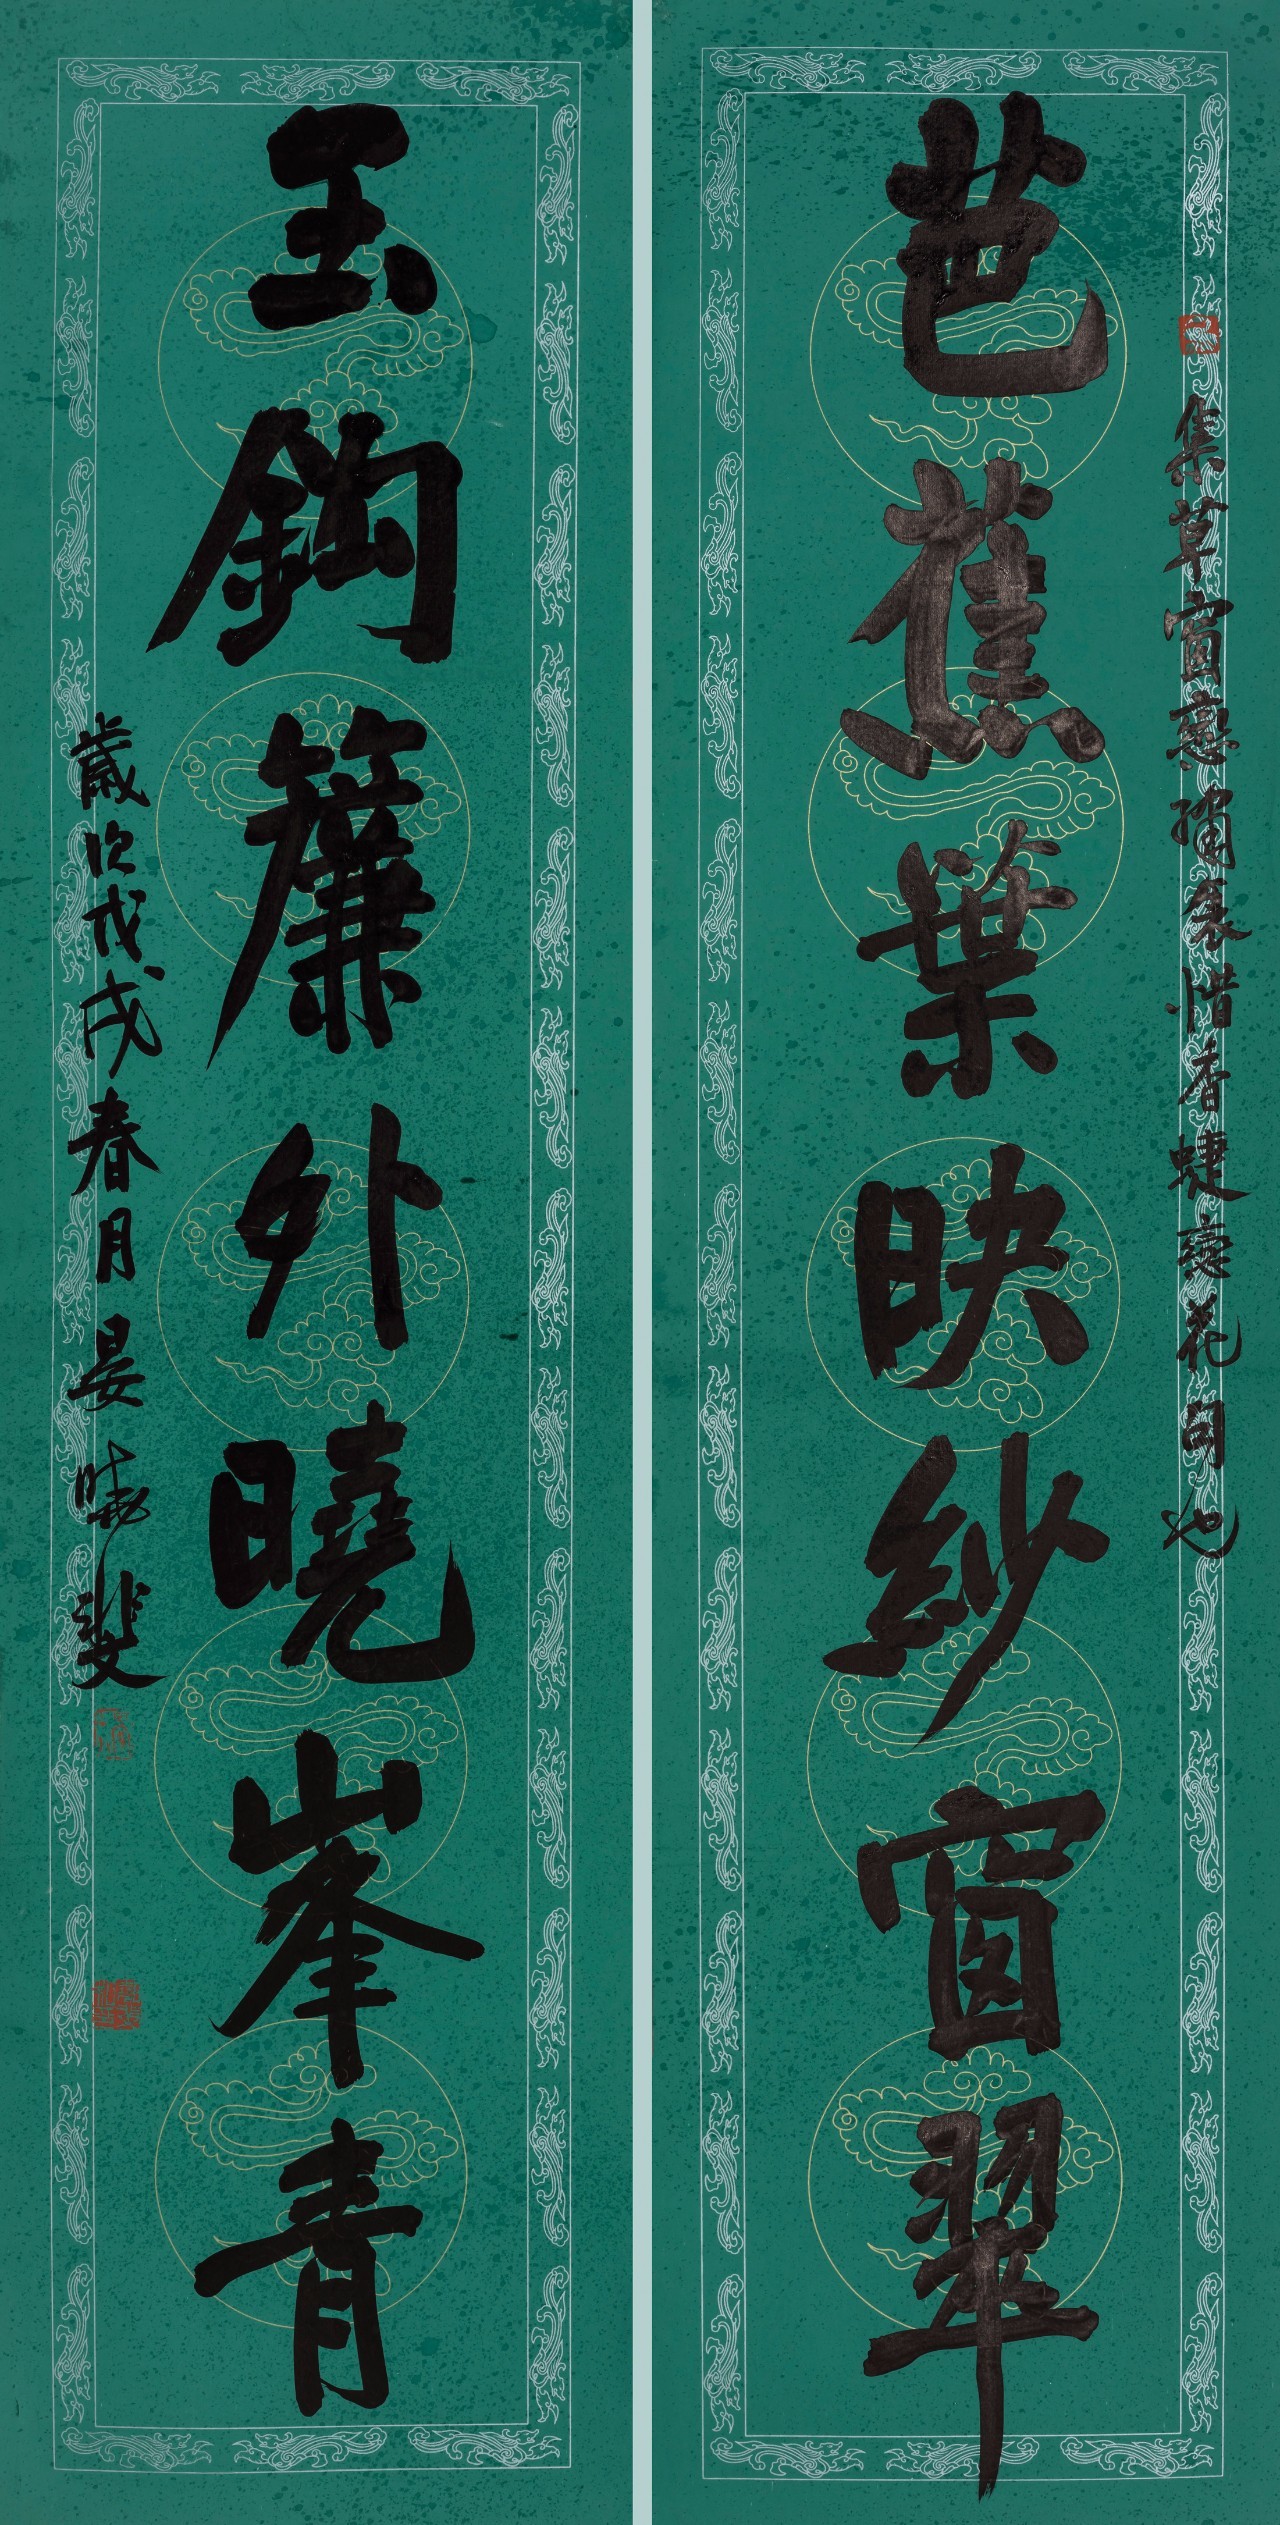 集草窗戀繡衾惜香蜨戀花句也
芭蕉葉映紗窗翠
玉鉤簾外曉峯青
歲次戊戌春月晏曉斐